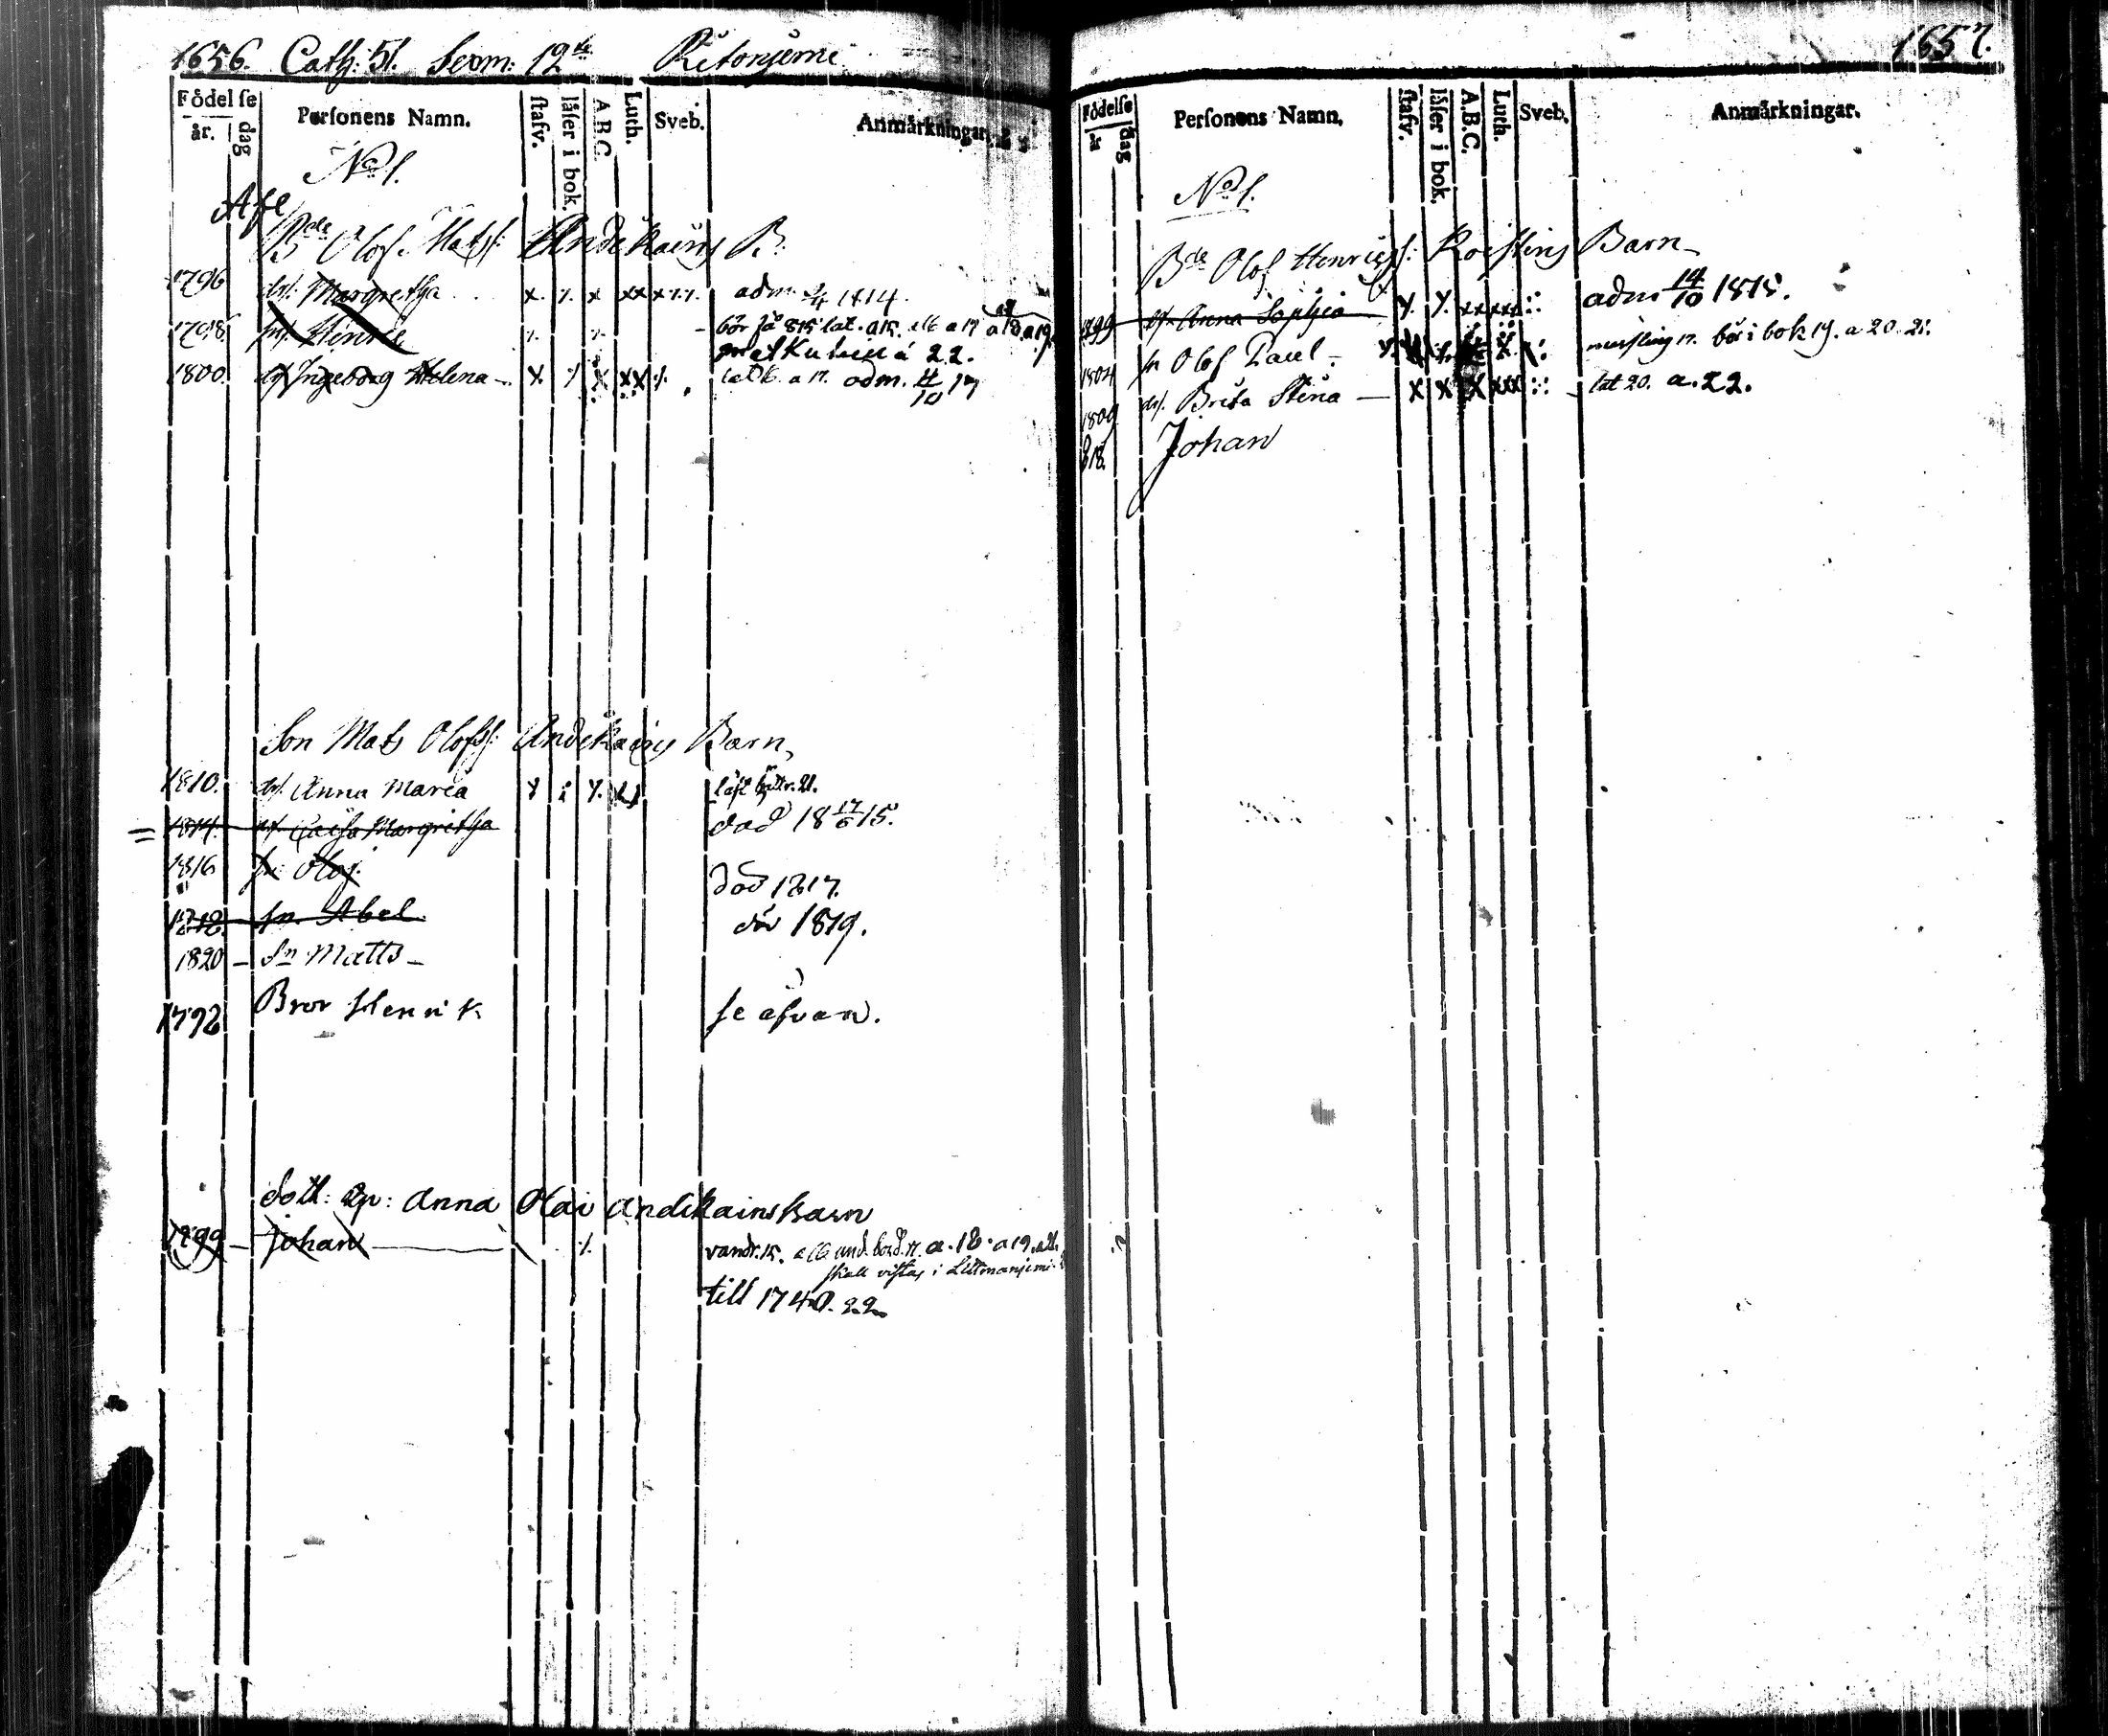 1656. Cath: 51. Seom: 12te Ritoniemi
Födelse
år. dag Personens Namn. stafv. läser i bok. A.B.C. Luth. Sveb. Anmärkningar.
No 1.
Bde Olof Matss: Andikains B:
1796 dr. Margretha x. x adm. 1814.
1798 Henric bör få 815 lat. a 15. a 17 a 18. a 19.
a 22.
1800. Ingeborg Helena x x xx lat a 17. adm. 4/10 17
Son Mats Olofs: Andikains Barn,
1810. dr. Anna Maria läst bättr. 21.
1814. Caisa Margretha död 18 17/6 15.
1816 sn: Olof död 1817.
sn. Abel död 1819.
1820 – Sn Matts –
1792 Bror Henrik se ofvan.
dott: Anna Olai Andikains Barn
1799 – Johan vandr. 15. a 16 a. 18. a 19.
skall vistas i Littmaniemi
till 1740. 22
1657.
Födelse
år dag Personens Namn. stafv. läser i bok. A.B.C. Luth. Sveb. Anmärkningar.
No 1.
Bde Olof Henricss: Koistins Barn
1799 Anna Sophia adm 14/10 1815.
1804 sn Olof Paul – 17. bör i bok 19. a 20. 21.
1809 dr. Brita Stina – x x x xxx lat 20. a. 22.
818. Johan